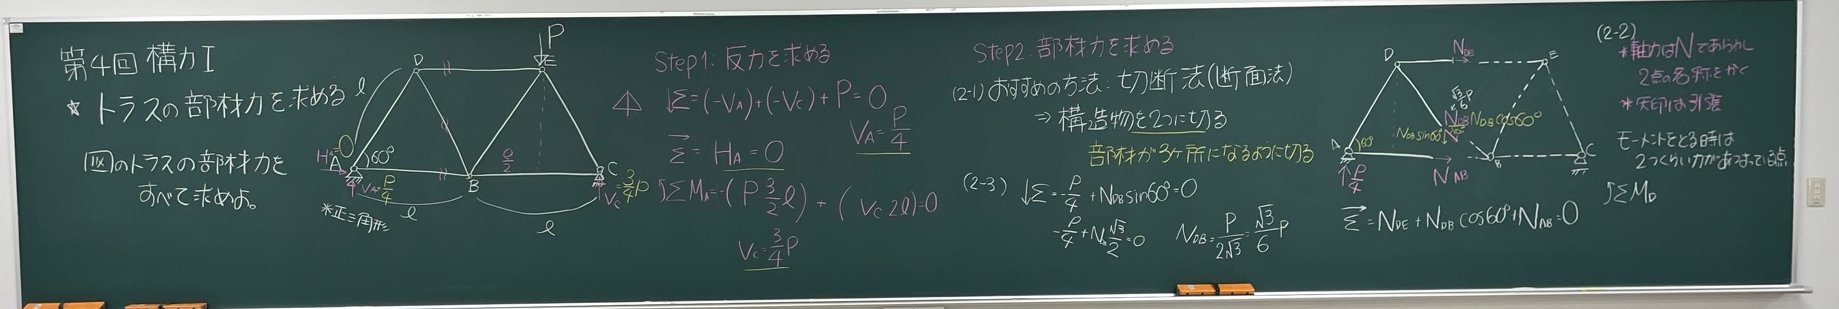 第4回 構力I
☆ トラスの部材力を求める
図のトラスの部材力を
すべて求めよ。
P
D
E
l
HA=0
A
60°
VA=P/4
B
l/2
C
VC=3/4P
l
l
*正三角形
Step1: 反力を求める
↓Σ=(-VA)+(-VC)+P=0
VA=P/4
Σ=HA=0
ΣMA=-(P 3/2 l)+(VC 2l)=0
VC=3/4P
Step2. 部材力を求める
(2-1) おすすめの方法: 切断法(断面法)
⇒ 構造物を2つに切る
部材が3ヶ所になるように切る
(2-3) ↓Σ=-P/4+NDB sin60°=0
-P/4+N √3/2=0
NDB=P/2√3=√3/6P
D
NDE
E
√3/6P
NDB sin60°
NDB
NDB cos60°
A
60°
P/4
NAB
B
C
Σ=NDE+NDB cos60°+NAB=0
(2-2)
*軸力はNであらわし
2点の名称をかく
*矢印は引張
モーメントをとる時は
2つくらい力があつまっている点
ΣMD